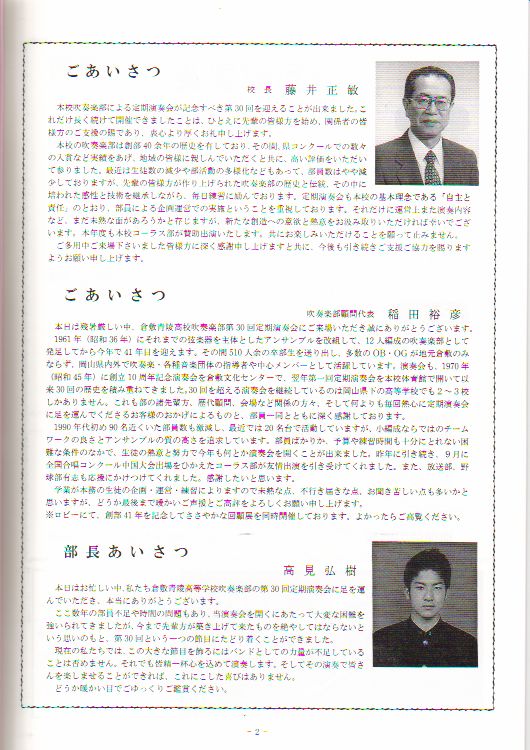 ごあいさつ
校長 藤井正敏
本校吹奏楽部による定期演奏会が記念すべき第30回を迎えることが出来ました。こ
れだけ長く続けて開催できましたことは、ひとえに先輩の皆様方を始め、関係者の皆
様方のご支援の賜であり、衷心より厚くお礼申し上げます。
本校の吹奏楽部は創部40余年の歴史を有しており、その間、県コンクールでの数々
の入賞など実績をあげ、地域の皆様に親しんでいただくと共に、高い評価をいただい
て参りました。最近は生徒数の減少や部活動の多様化などもあって、部員数はやや減
少しておりますが、先輩の皆様方が作り上げられた吹奏楽部の歴史と伝統、その中に
培われた感性と技術を継承しながら、毎日練習に励んでおります。定期演奏会も本校の基本理念である「自主と
責任」のとおり、部員による企画運営での実施ということを重視しております。それだけに運営上また演奏内容
など、まだ未熟な面があろうかと存じますが、新たな創造への意欲と熱意をお汲み取りいただければ幸いでござ
います。本年度も本校コーラス部が賛助出演いたします。共にお楽しみいただけることを願って止みません。
ご多用中ご来場下さいました皆様方に深く感謝申し上げますと共に、今後も引き続きご支援ご協力を賜ります
ようお願い申し上げます。
ごあいさつ
吹奏楽部顧問代表 稲田裕彦
本日は残暑厳しい中、倉敷青陵高校吹奏楽部第30回定期演奏会にご来場いただき誠にありがとうございます。
1961年（昭和36年）にそれまでの弦楽器を主体としたアンサンブルを改組して、12人編成の吹奏楽部として
発足してから今年で41年目を迎えます。その間510人余の卒部生を送り出し、多数のOB・OGが地元倉敷のみ
ならず、岡山県内外で吹奏楽・各種音楽団体の指導者や中心メンバーとして活躍しています。演奏会も、1970年
（昭和45年）に創立10周年記念演奏会を倉敷文化センターで、翌年第一回定期演奏会を本校体育館で開いて以
来30回の歴史を積み重ねてきました。30回を超える演奏会を継続しているのは岡山県下の高等学校でも2～3校
しかありません。これも部の諸先輩方、歴代顧問、会場など関係の方々、そして何よりも毎回熱心に定期演奏会
に足を運んでくださるお客様のおかげによるものと、部員一同とともに深く感謝しております。
1990年代初め90名近くいた部員数も激減し、最近では20名台で活動していますが、小編成ならではのチーム
ワークの良さとアンサンブルの質の高さを追求しています。部員ばかりか、予算や練習時間も十分にとれない困
難な条件のなかで、生徒の熱意と努力で今年も何とか演奏会を開くことが出来ました。昨年に引き続き、9月に
全国合唱コンクール中国大会出場をひかえたコーラス部が友情出演を引き受けてくれました。また、放送部、野
球部有志も応援にかけつけてくれました。感謝したいと思います。
学業が本務の生徒の企画・運営・練習によりますので未熟な点、不行き届きな点、お聞き苦しい点も多いかと
思いますが、どうか最後まで暖かいご声援とご高評をよろしくお願い申し上げます。
※ロビーにて、創部41年を記念してささやかな回顧展を同時開催しております。よかったらご高覧ください。
部長あいさつ
高見弘樹
本日はお忙しい中、私たち倉敷青陵高等学校吹奏楽部の第30回定期演奏会に足を運
んでいただき、本当にありがとうございます。
ここ数年の部員不足や時間の問題もあり、当演奏会を開くにあたって大変な困難を
強いられてきましたが、今まで先輩方が築き上げて来たものを絶やしてはならないと
いう思いのもと、第30回という一つの節目にたどり着くことができました。
現在の私たちでは、この大きな節目を飾るにはバンドとしての力量が不足している
ことは否めません。それでも皆精一杯心を込めて演奏します。そしてその演奏で皆さ
んを楽しませることができれば、これにこした喜びはありません。
どうか暖かい目でごゆっくりご鑑賞ください。
- 2 -